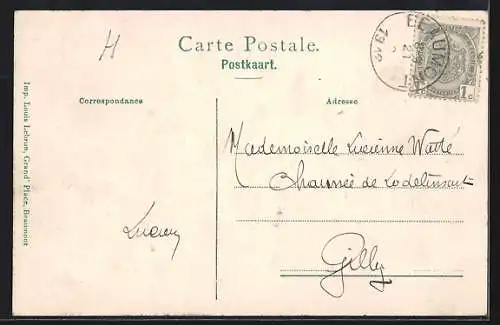 H
Carte Postale.
Postkaart.
BEAUMONT
1912
1c
Correspondance
Adresse
Mademoiselle Lucienne Watté
Chaussée de Lodelinsart
Gilly
Imp. Louis Lebrun, Grand' Place, Beaumont